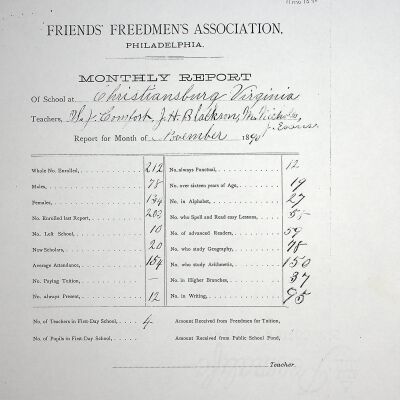 FRIENDS' FREEDMEN'S ASSOCIATION,
PHILADELPHIA.
MONTHLY REPORT
Of School at Christiansburg Virginia
Teachers, J. Comfort, J. H. Blackson,
Report for Month of November 1890
Whole No. Enrolled, 212
Males, 78
Females, 134
No. Enrolled last Report, 202
No. Left School, 10
New Scholars, 20
Average Attendance, 154
No. Paying Tuition, —
No. always Present, 12
No. always Punctual, 12
No. over sixteen years of Age, 19
No. in Alphabet, 27
No. who Spell and Read easy Lessons, 5
No. of advanced Readers, 59
No. who study Geography, 78
No. who study Arithmetic, 150
No. in Higher Branches, 37
No. in Writing, 95
No. of Teachers in First-Day School, 4
No. of Pupils in First-Day School,
Amount Received from Freedmen for Tuition,
Amount Received from Public School Fund,
Teacher.